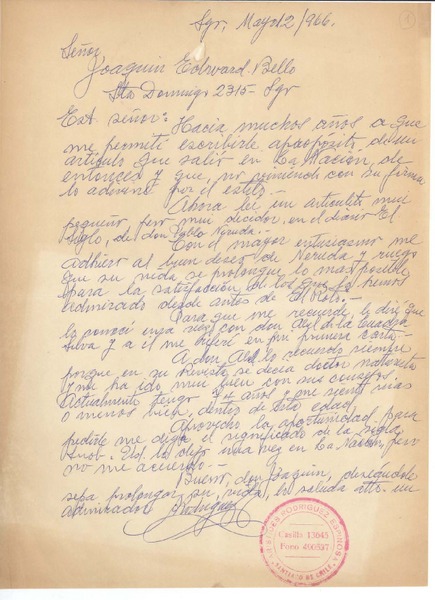 1
Sgo, Mayo 2/966.
Señor
Joaquin Edwards Bello
Sto Domingo 2315 - Sgo
Est. señor: Hacia muchos años a que
me permití escribirle apropósito de un
artículo que salió en La Nación, de
entonces y que, no poniendo con su firma
lo adiviné por el estilo.
Ahora leí un articulito mui
pequeño pero mui decidor, en el diario El
Siglo, de don Pablo Neruda.
Con el mayor entusiasmo me
adhiero al buen deseo de Neruda y ruego
que su vida se prolongue lo mas posible
para la satisfacción de los que lo hemos
admirado desde antes de
Para que me recuerde, le diré que
lo conocí una vez con don de la Cuadra
Silva y a él me referí en mi primera carta
A don lo recuerdo siempre
porque en su Revista se decía doctor naturista
y me ha ido mui bien con sus consejos
Actualmente tengo 74 años y me siento mas
o menos bien, dentro de esta edad.
Aprovecho la oportunidad para
pedirle me diga el significado de la sigla
Snob. Ud. lo dijo una vez en La Nación, pero
no me acuerdo.
Bueno, don Joaquin, deseándole
se prolongue su vida, lo saluda atto. un
admirador Rodríguez
RODRIGUEZ ESPINOSA
Casilla 13645
Fono 490527
SANTIAGO DE CHILE